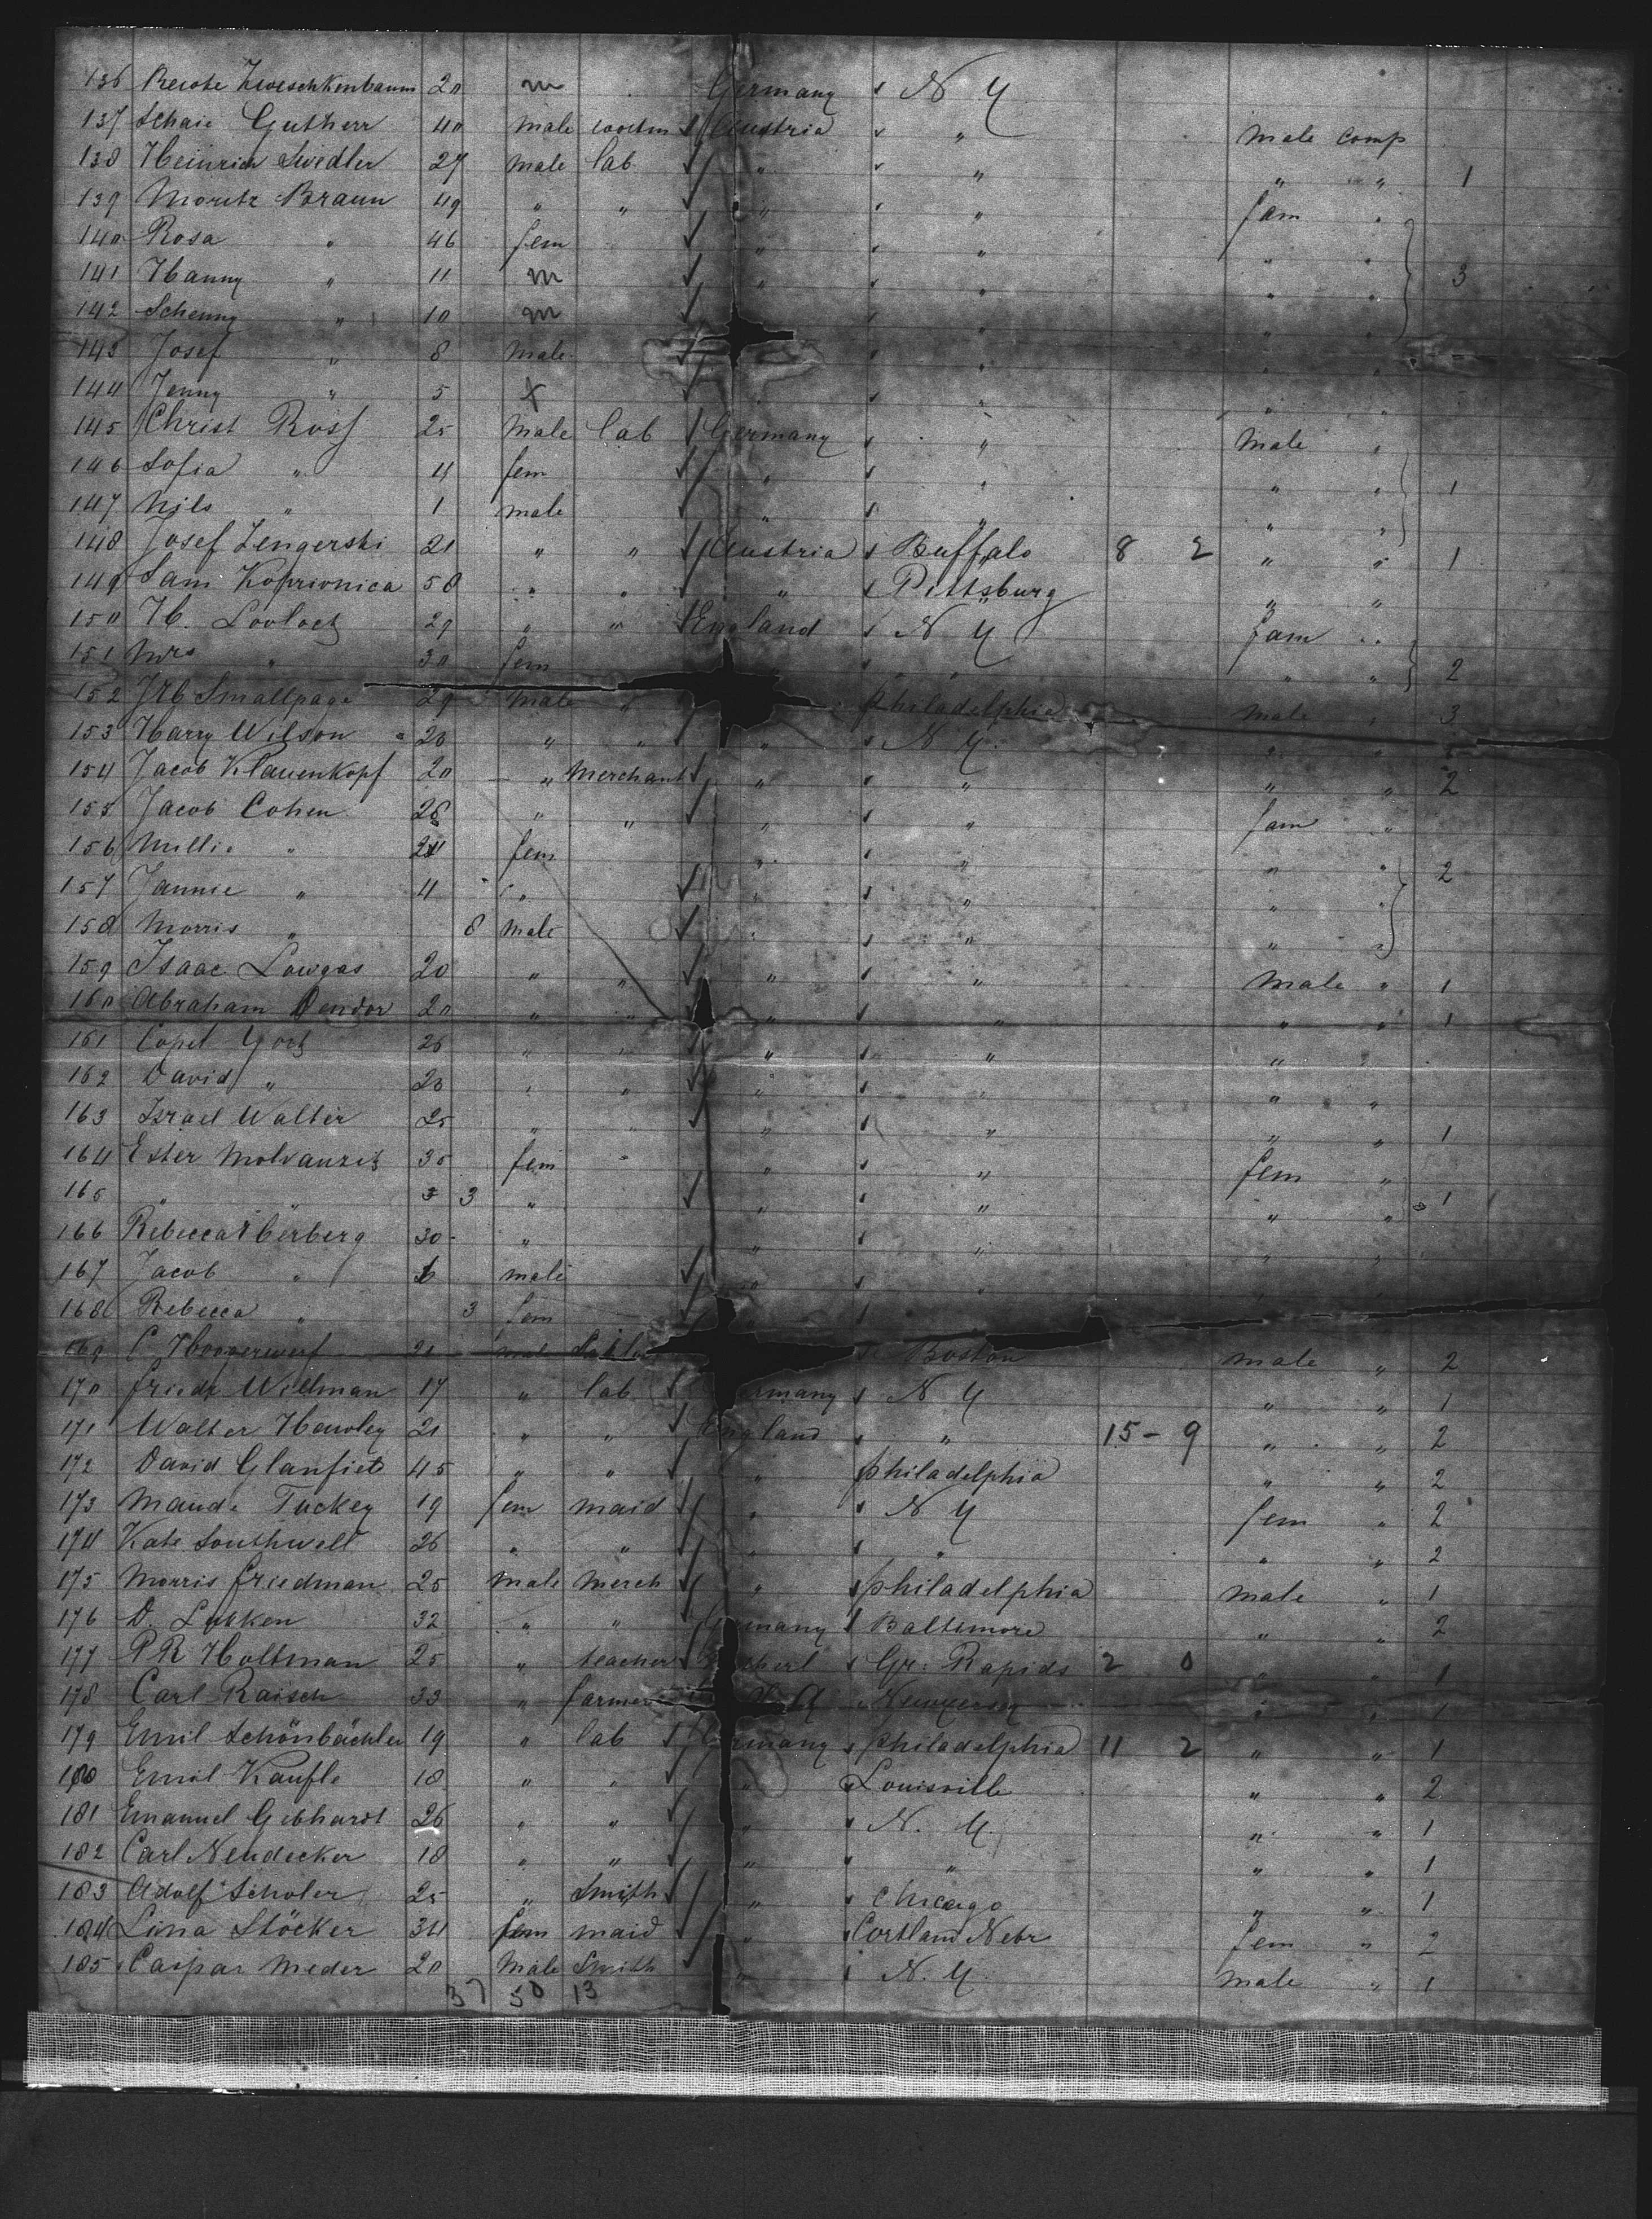 136 Zwetschkenbaum 20 m Germany N Y
137 Schaie Gutherr 40 male Austria " male comp
138 Heinrich Swedler 27 male lab " " " " 1
139 Moritz Braun 49 " " " " fam "
140 Rosa " 46 fem " " " "
141 Hanny " 11 m " " " " 3
142 " 10 m " "
143 Josef " 8 male " " "
144 Jenny " 5 X " " " "
145 Christ Ross 25 male lab Germany " male "
146 Sofia " 4 fem " " " " 1
147 Nils " 1 male " " " "
148 Josef Zengerski 21 " " Austria Buffalo 8 2 " " 1
149 Sam Koprivnica 50 " " " Pittsburg " "
150 H. 29 " " England N Y fam "
151 Mrs " 30 fem " " " 2
152 Smallpage 29 male " Philadelphia male " 3
153 Harry Wilson 20 " " " N Y. " "
154 Jacob Klauenkopf 20 " merchant " " " " 2
155 Jacob Cohen 28 " " " " fam "
156 Millie " fem " " " " 2
157 Jannie " 4 " " " " "
158 Morris " 8 male " " " "
159 Isaac Lowgas 20 " " " " male " 1
160 Abraham Dendor 20 " " " " " " 1
161 Copel 26 " " " " " "
162 David " 20 " " " " " "
163 Israel Walter 25 " " " " " " 1
164 Ester 35 fem " " " fem "
165 " " 3 " " " " " 1
166 Rebecca 30 " " " " "
167 Jacob " 6 male " " "
168 Rebecca " 3 fem
169 C. Hoogerwerf male Boston male " 2
170 Friedr Willman 17 " lab Germany N Y " " 1
171 Walter Hawley 21 " " England " 15 - 9 " " 2
172 David 45 " " " Philadelphia " " 2
173 Maude Tuckey 19 fem maid " N Y fem " 2
174 Kate Southwell 26 " " " " " " 2
175 Morris Friedman 25 male merch " Philadelphia male " 1
176 D. Lubken 32 " " Germany Baltimore " " 2
177 P R Holtman 25 " teacher Gr: Rapids 2 0 " " 1
178 Carl Raisch 33 " farmer " " 1
179 Emil Schönbächler 19 " lab Germany Philadelphia 11 2 " " 1
180 Emil Kaufle 18 " " " Louisville " " 2
181 Emanuel Gebhardt 26 " " " N. Y. " " 1
182 Carl Neudecker 18 " " " " " " 1
183 Adolf Scholer 25 " Smith " Chicago " " 1
184 Lina Stöcker 34 fem maid " Cortland Nebr fem " 2
185 Caspar Meder 20 male Smith " N. Y. male " 1
37 50 13